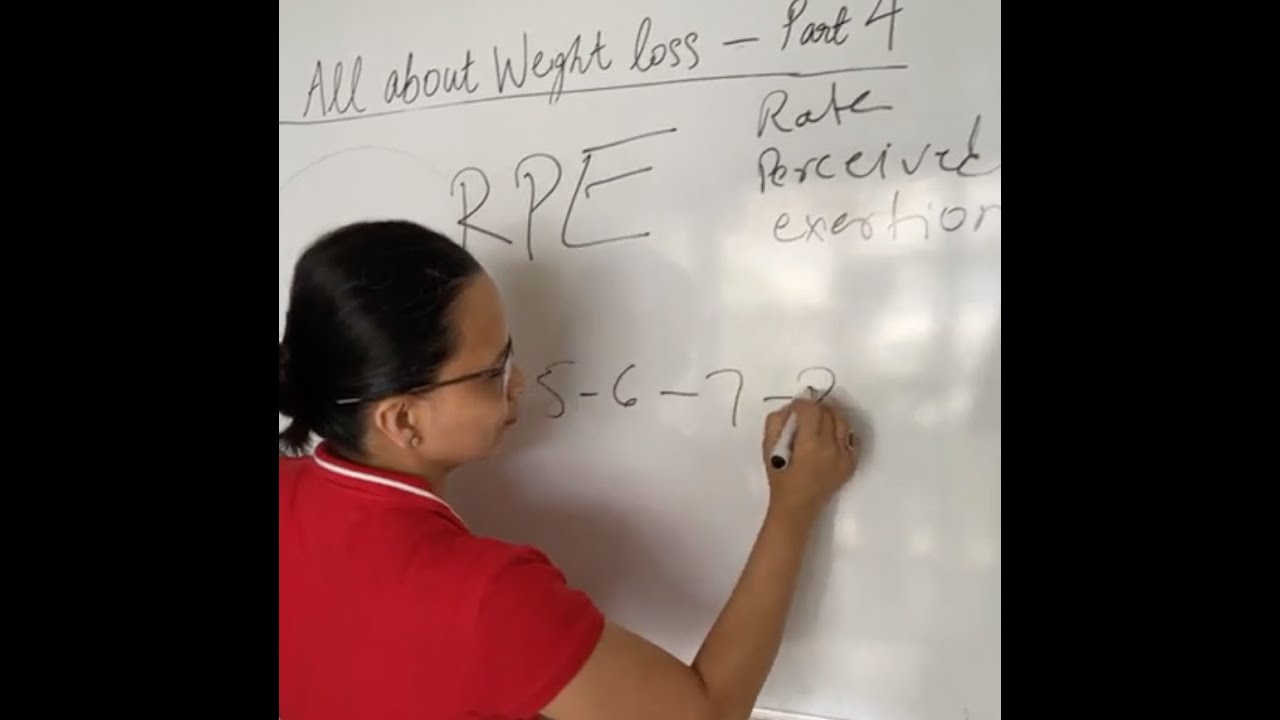 All about Weight loss – Part 4
RPE
Rate
Perceived
exertion
5 - 6 - 7 -